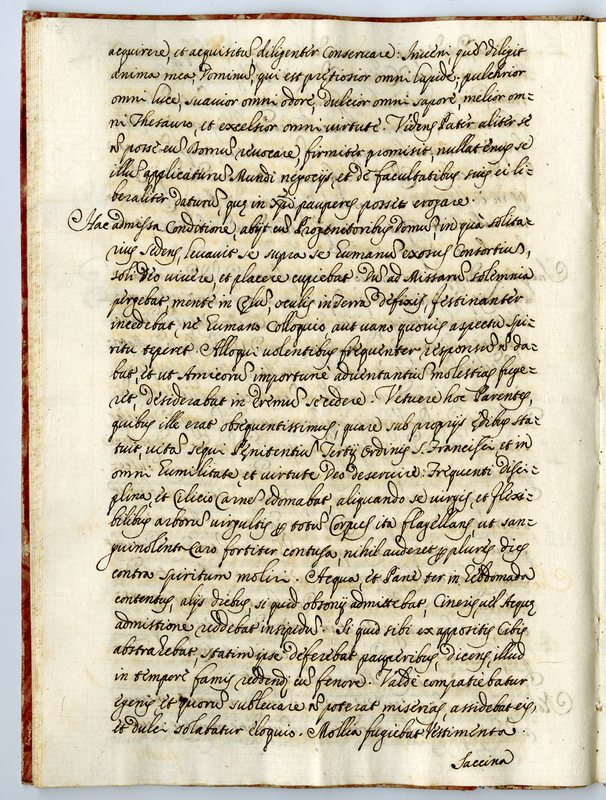 acquirere, et acquisitū diligenter Conseruare: Inueni quē diligit
anima mea, Dominū, qui est pretiosior omni lapide, pulchrior
omni luce, suavior omni odore, dulcior omni sapore, melior om=
ni Thesauro, et excelsior omni virtute. Videns Pater aliter se
nō posse eū Domū reuocare, firmiter promisit, nullatenus se
illū applicaturū Mundi negocijs, et de facultatibus suis ei li=
beraliter daturū, quę in Xp̄i pauperes possit erogare.
Hac admissa Conditione, abijt eū Progenitoribus Domū, in qua solita=
rius sedens, leuauit se supra se Eumanū exosus Consortiū,
soli Deo uiuere, et placere cupiebat. Dū ad Missarū solemnia
pergebat, mente in Cęlū, oculis in Terrā defixis, festinanter
incedebat, ne Eumano Colloquio aut uano quouis aspectu spi=
ritu teperet. Alloqui uolentibus frequenter responsū nō da=
bat, et ut Amicorū importunè aduentantiū molestias fuge=
ret, desiderabat in Eremū secedere. Vetuere hoc Parentes,
quibus ille erat obsequentissimus; quare sub proprijs Ędibus sta=
tuit, uitā sequi Pęnitentiū Tertij Ordinis S. Francisci, et in
omni Eumilitate et uirtute Deo deseruire. Frequenti disci=
plina, et Cilicio Carnē edomabat, aliquando se uirgis, et flexi=
bilibus arborū uirgultis ꝑ totū Corpus ita flagellans, ut san=
guinolenta Caro fortiter contusa, nihil auderet ꝑ plures dies
contra spiritum moliri. Acqua, et Pane ter in Eebdomada
contentus, alijs diebus, si quid obsonij admittebat, Cineris uel Aequę
admistione reddebat insipidū. Si quid sibi ex appositis Cibis
abstraEebat, statim ipse deferebat pauperibus, dicens illud
in tempore famis reddendū eū fenore. Valdè compatiebatur
egenis, et quorū subleuare nō poterat miserias, assidebat eis,
et dulci solabatur eloquio. Mollia fugiebat Vestimenta.
Saccina